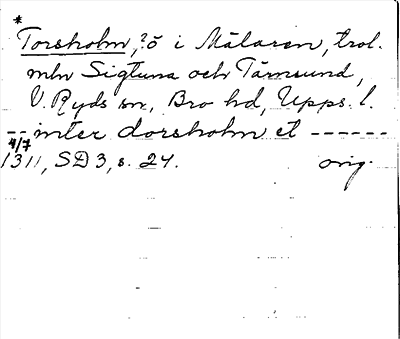 *
Torsholm, ?ö i Mälaren, trol.
mln Sigtuna och Tärnsund,
V. Ryds sn, Bro hd, Upps. l.
-- inter dorsholm et ------
4/7
1311, SD 3, s. 24. orig.